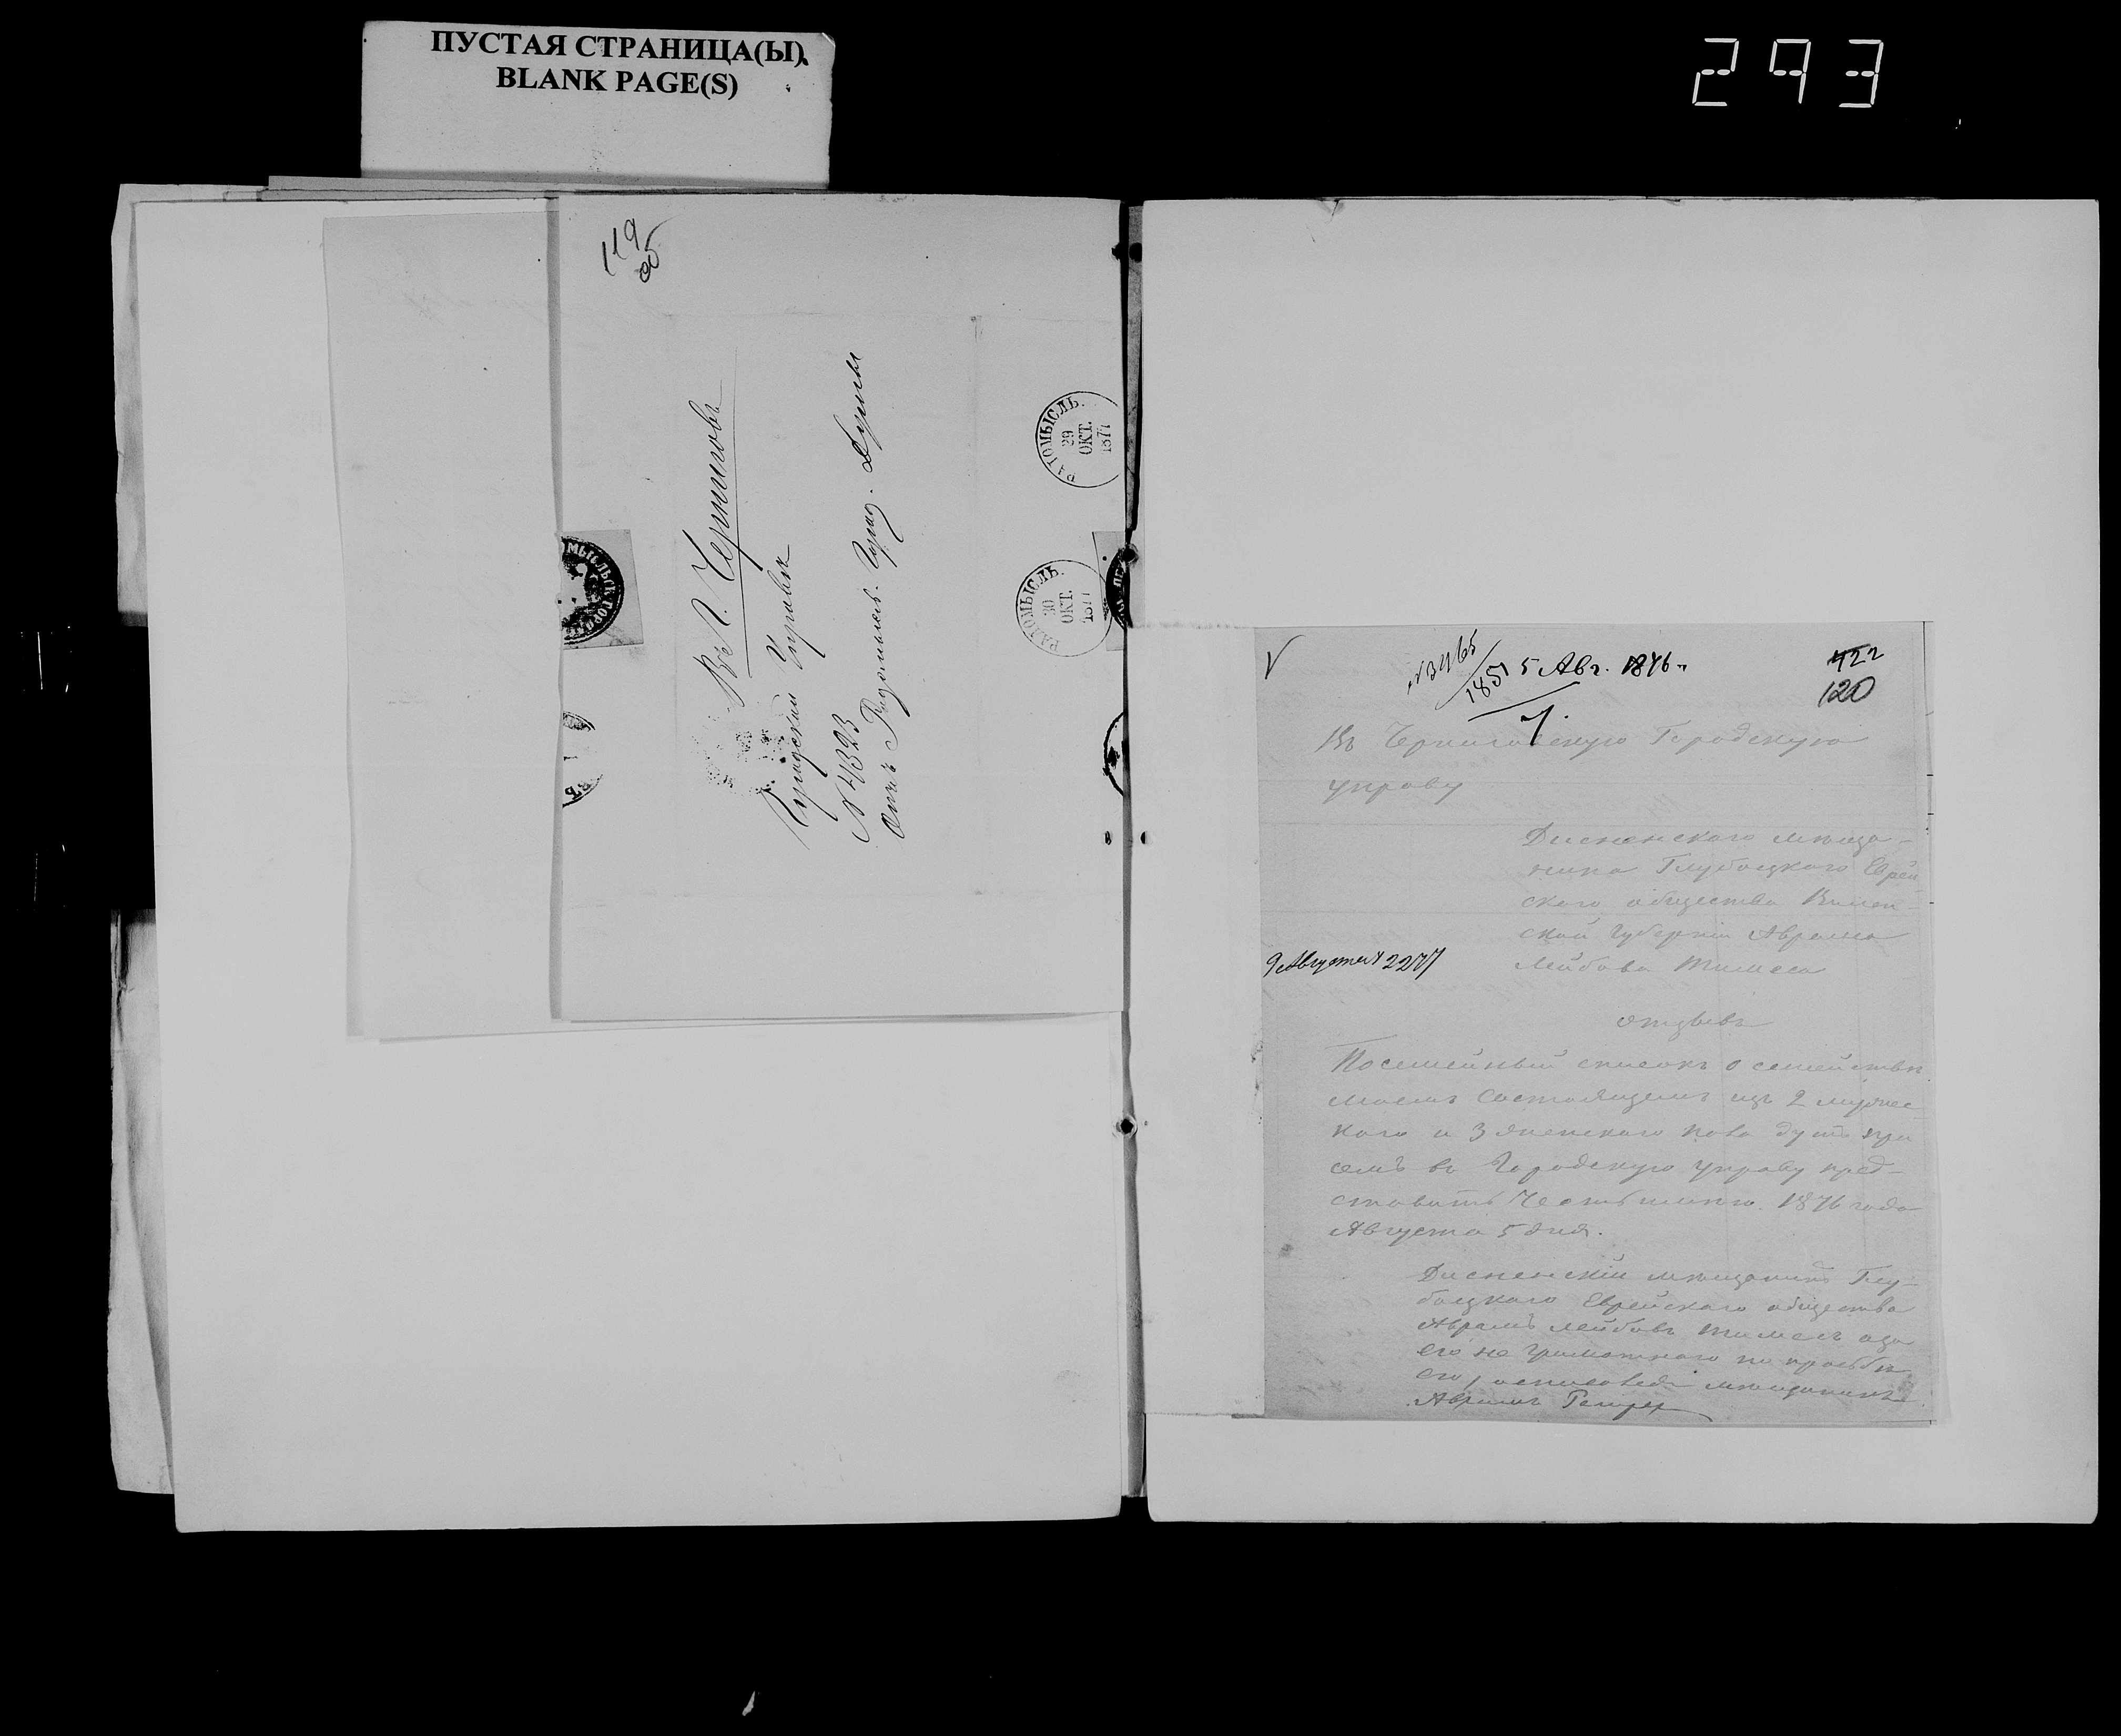 ПУСТАЯ СТРАНИЦА(Ы).
BLANK PAGE(S)
293
119
об
Въ Г. Черниговъ
Городской Управѣ
№ 4323
Отъ Радомысль. Город. Думы
РАДОМЫСЛЬ.
29
ОКТ.
1877
РАДОМЫСЛЬ.
30
ОКТ.
1877
V
№ 3465
1851 5 Авг. 1876 г.
422
120
Въ Черниговскую Городскую
управу
Дисненскаго мѣща-
нина Глубоцкаго Еврей
скаго общества Вилен-
ской губерніи Абрама
Лейбова
9 Августа № 2277
отзывъ
Посемейный списокъ о семействѣ
моемъ состоящемъ изъ 2 мужес-
каго и 3 женскаго пола душъ при
семъ въ Городскую управу пред-
ставить честь имѣю. 1876 года
Августа 5 дня.
Дисненскій мѣщанинъ Глу-
боцкаго Еврейскаго общества
Абрамъ Лейбовъ а за
его не грамотнаго по просьбѣ
его, мѣщанинъ
Абрамъ